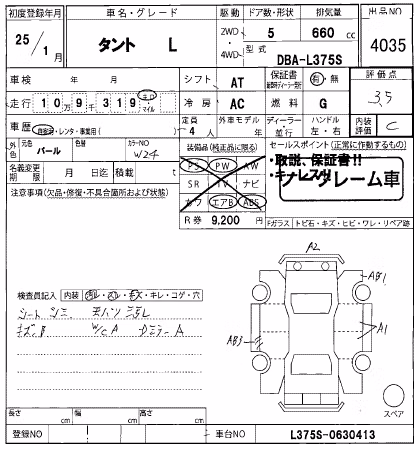 初度登録年月 車名・グレード 駆動 ドア数・形状 排気量 出品NO
25/1月 タント L 2WD・4WD 5 660 cc 4035
型式 DBA-L375S
車検 年 月 シフト AT 保証書 有・無 評価点
走行 10万9千319 キロ マイル 冷房 AC 燃料 G 3.5
車歴 自家用・レンタ・事業用( ) 定員 4人 外車モデル 年 ディーラー 並行 ハンドル 左・右 内装評価 C
外色 元色 パール 色替 カラーNO W24 装備品(純正品に限る) セールスポイント(正常に作動するもの)
名義変更期限 月 日迄 積載 t PS PW AW ・取説、保証書!!
SR TV ナビ ・キーレス フレーム車
注意事項(欠品・修復・不具合箇所および状態) カワ エアB ABS
R券 9,200円 Fガラス トビ石・キズ・ヒビ・ワレ・リペア跡
A2
AB1
検査員記入 内装 キレ・コゲ・穴
シート シミ
キズB W/C A Dミラー A
AB3 A1
スペア
長さ cm 幅 cm 高さ cm
登録NO 車台NO L375S-0630413